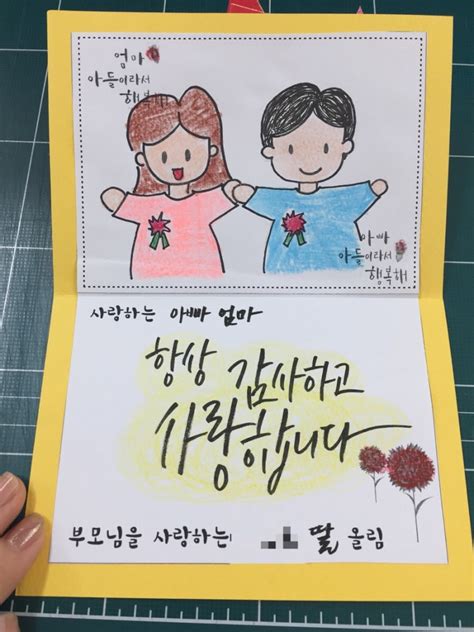 엄마
아들이라서
행복해
아빠
아들이라서
행복해
사랑하는 아빠 엄마
항상 감사하고
사랑합니다
부모님을 사랑하는 딸 올림